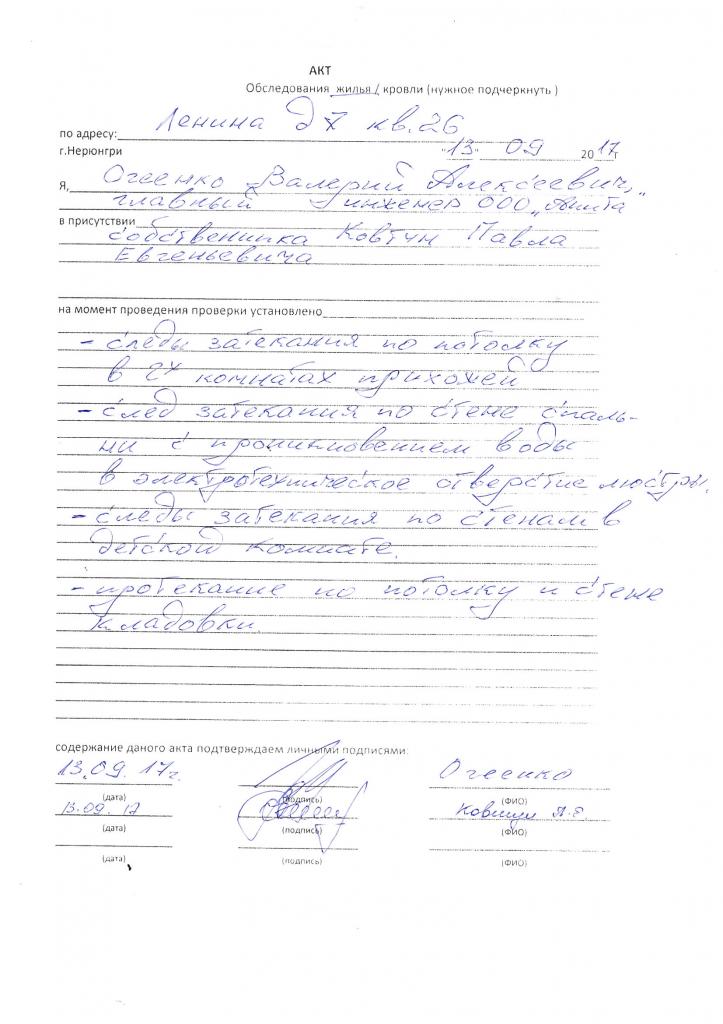 АКТ
Обследования жилья / кровли (нужное подчеркнуть )
по адресу: Ленина д 7 кв. 26
г.Нерюнгри "13" 09 2017г
Я, Огеенко Валерий Алексеевич,
главный инженер ООО "Анита"
в присутствии
собственника Ковтун Павла
Евгеньевича
на момент проведения проверки установлено
- следы затекания по потолку
в 2х комнатах прихожей
- след затекания по стене спаль-
ни с проникновением воды
в электротехническое отверстие люстры.
- следы затекания по стенам в
детской комнате.
- протекание по потолку и стене
кладовки.
содержание даного акта подтверждаем личными подписями:
13.09.17г. Огеенко
(дата) (подпись) (ФИО)
13.09.17 Ковтун П.Е.
(дата) (подпись) (ФИО)
(дата) (подпись) (ФИО)